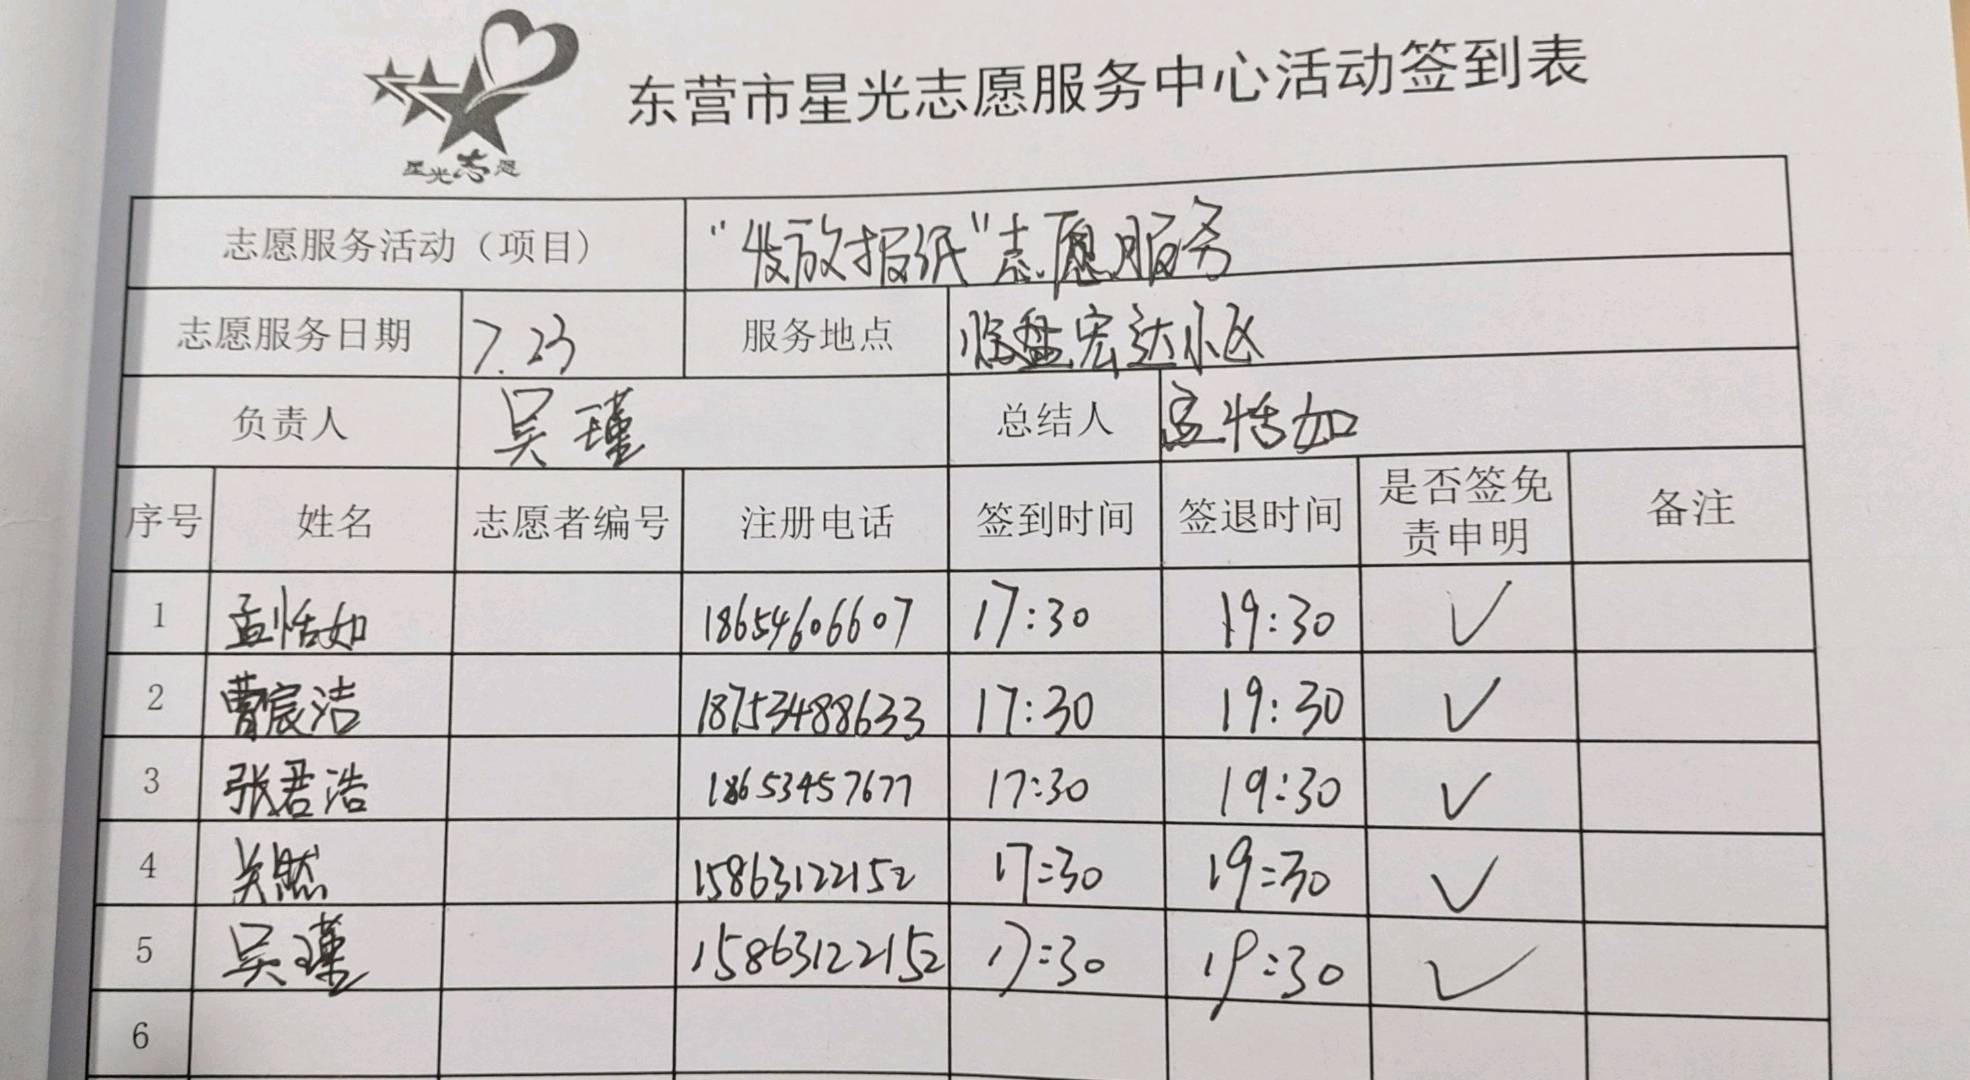 东营市星光志愿服务中心活动签到表
星光志愿
志愿服务活动（项目） “发放报纸”志愿服务
志愿服务日期 7.23 服务地点 临盘宏达小区
负责人 吴瑾 总结人 孟恬如
序号 姓名 志愿者编号 注册电话 签到时间 签退时间 是否签免责申明 备注
1 孟恬如 18654606607 17:30 19:30 √
2 曹宸洁 18753488633 17:30 19:30 √
3 张君浩 18653457677 17:30 19:30 √
4 关然 15863122152 17:30 19:30 √
5 吴瑾 15863122152 17:30 19:30 √
6